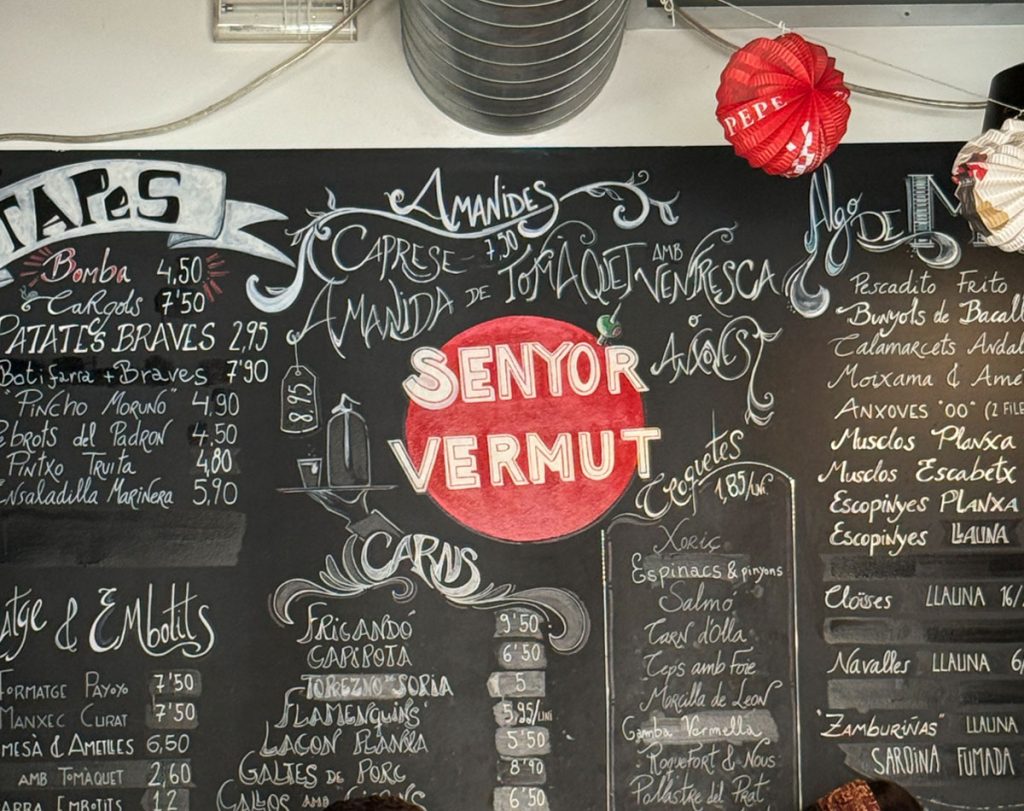 TAPES
Bomba 4,50
CARGOLS 7'50
PATATES BRAVES 2,95
Botifarra + Braves 7'90
"PINCHO MORUNO" 4,90
Pebrots del PADRON 4,50
PINTXO TRUITA 4,80
ENSALADILLA MARINERA 5,90
& EMbOtITS
FORMATGE PAYOYO 7'50
MANXEC CURAT 7'50
& AMETLLES 6,50
AMB TOMÀQUET 2,60
EMBOTITS 12
AMANIDES
CAPRESE 7,50
AMANIDA DE TOMAQUET AMB VENTRESCA
O ANXOVES
8,95
SENYOR
VERMUT
CARNS
FRICANDÓ 9'50
CAPIPOTA 6'50
TOREZNO SORIA 5
FLAMENQUINS 5,95/UNI
LACON PLANXA 5'50
GALTES DE PORC 8'90
CALLOS AMB 6'50
Croquetes
1,85/UNI.
Xoriç
Espinacs & pinyons
Salmó
Carn d'Olla
Ceps amb Foie
Morcilla de Leon
Gamba Vermella
Roquefort & Nous
Pollastre del Prat
PEPE
Algo DE
Pescadito Frito
Bunyols de
Calamarcets
Moixama &
ANXOVES "OO"
Musclos Planxa
Musclos Escabetx
Escopinyes PLANXA
Escopinyes LLAUNA
Cloïsses LLAUNA
Navalles LLAUNA
"ZAMBURIÑAS" LLAUNA
SARDINA FUMADA